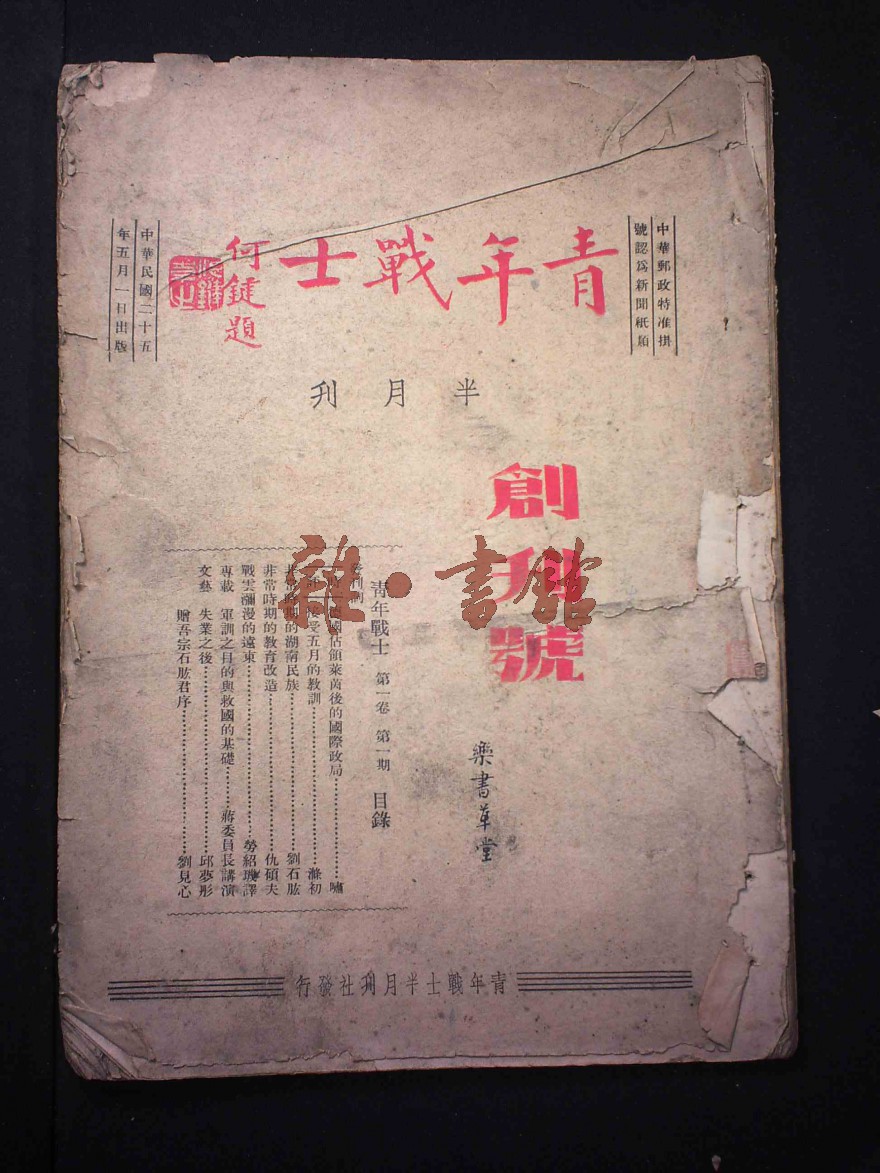 中華郵政特准掛
號認為新聞紙類
青年戰士
何鍵題
中華民國二十五
年五月一日出版
半月刋
創刋號
雜·書館
青年戰士 第一卷 第一期 目錄
發刊詞
國佔領萊茵後的國際政局……嘯
接受五月的教訓……滌初
非常時期的湖南民族……劉石肱
非常時期的教育改造……仇碩夫
戰雲瀰漫的遠東……勞紹璣譯
專載 軍訓之目的與救國的基礎……蔣委員長講演
文藝 失業之後……邱夢彤
贈吾宗石肱君序……劉見心
樂書草堂
青年戰士半月刋社發行